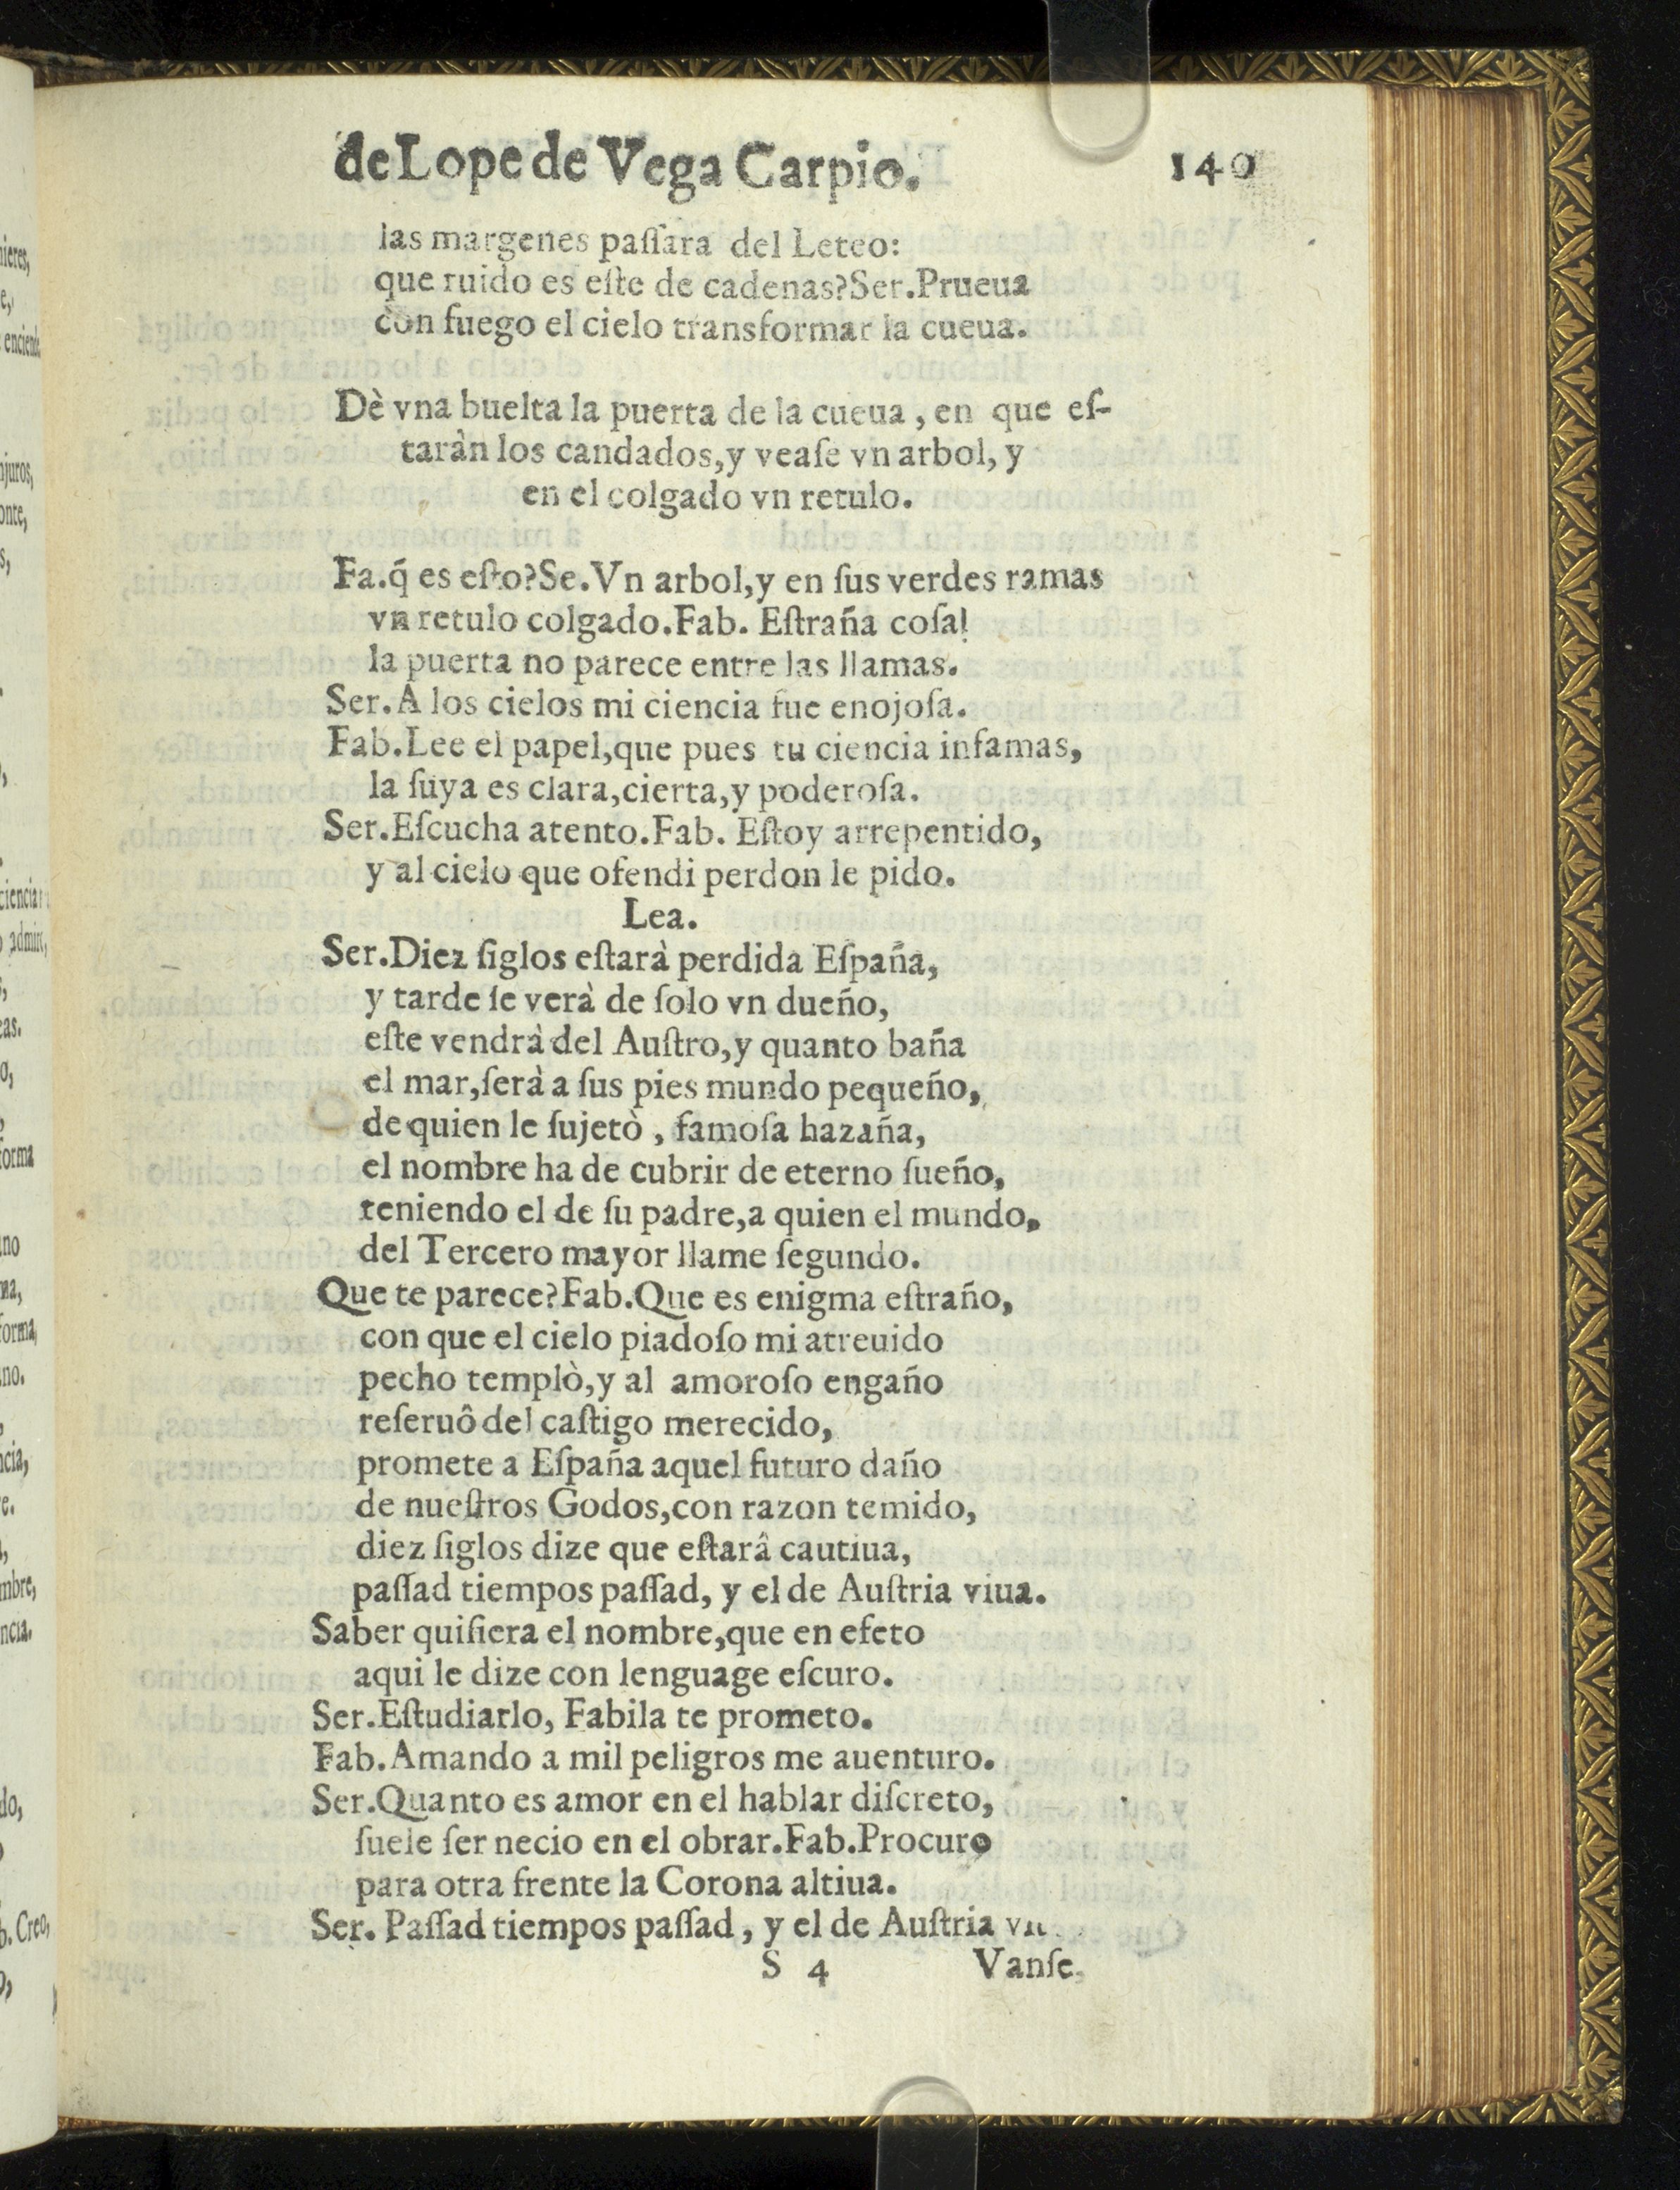 de Lope de Vega Carpio. 140
las margenes paſſara del Leteo:
que ruido es eſte de cadenas?Ser.Prueua
con fuego el cielo transformar la cueua.
Dè vna buelta la puerta de la cueua, en que eſ-
taràn los candados,y veaſe vn arbol, y
en el colgado vn retulo.
Fa.q̃ es eſto?Se.Vn arbol,y en ſus verdes ramas
vn retulo colgado.Fab. Eſtraña coſa!
la puerta no parece entre las llamas.
Ser.A los cielos mi ciencia fue enojoſa.
Fab.Lee el papel,que pues tu ciencia infamas,
la ſuya es clara,cierta,y poderoſa.
Ser.Eſcucha atento.Fab. Eſtoy arrepentido,
y al cielo que ofendi perdon le pido.
Lea.
Ser.Diez ſiglos eſtarà perdida Eſpaña,
y tarde ſe verà de ſolo vn dueño,
eſte vendrà del Auſtro,y quanto baña
el mar,ſerà a ſus pies mundo pequeño,
de quien le ſujetò, famoſa hazaña,
el nombre ha de cubrir de eterno ſueño,
teniendo el de ſu padre,a quien el mundo,
del Tercero mayor llame ſegundo.
Que te parece?Fab.Que es enigma eſtraño,
con que el cielo piadoſo mi atreuido
pecho templò,y al amoroſo engaño
reſeruô del caſtigo merecido,
promete a Eſpaña aquel futuro daño
de nueſtros Godos,con razon temido,
diez ſiglos dize que eſtarâ cautiua,
paſſad tiempos paſſad, y el de Auſtria viua.
Saber quiſiera el nombre,que en efeto
aqui le dize con lenguage eſcuro.
Ser.Eſtudiarlo, Fabila te prometo.
Fab.Amando a mil peligros me auenturo.
Ser.Quanto es amor en el hablar diſcreto,
ſuele ſer necio en el obrar.Fab.Procuro
para otra frente la Corona altiua.
Ser. Paſſad tiempos paſſad, y el de Auſtria
S 4 Vanſe.